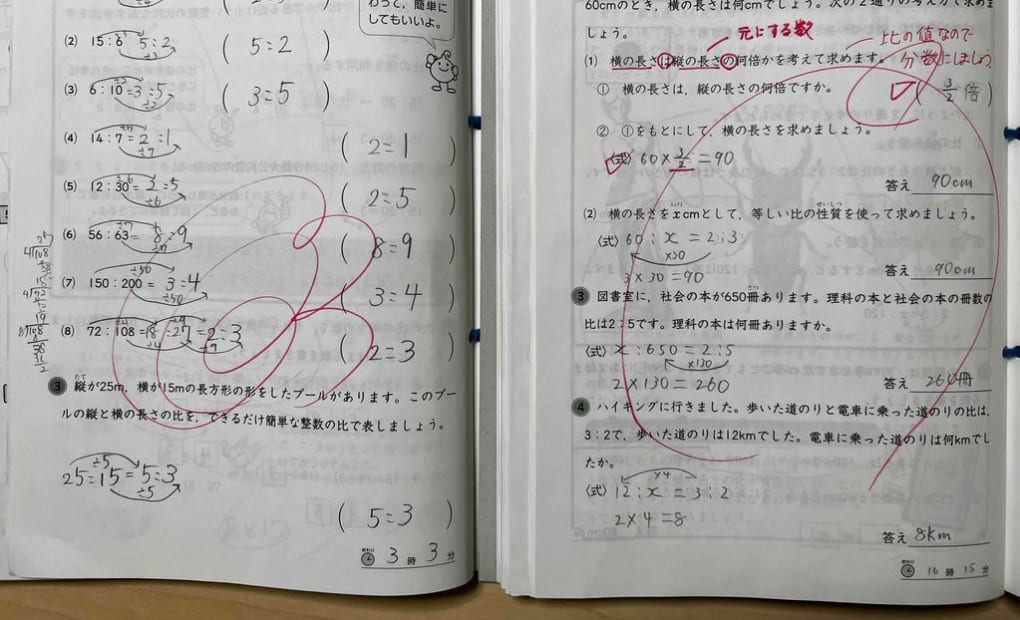 わって、簡単に
してもいいよ。
(2) 15:6 5:2 (5:2)
÷3
(3) 6:10=3:5 (3=5)
÷2
(4) 14:7=2:1 (2=1)
÷7
(5) 12:30=2:5 (2=5)
÷6
(6) 56:63=8:9 (8=9)
÷7
(7) 150:200=3:4 (3=4)
÷50
÷50
(8) 72:108=18:27=2:3 (2=3)
÷4 ÷9
3 縦が25m、横が15mの長方形の形をしたプールがあります。このプー
ルの縦と横の長さの比を、できるだけ簡単な整数の比で表しましょう。
÷5
25=15=5:3
÷5
(5=3)
3時3分
60cmのとき、横の長さは何cmでしょう。次の2通りの考え方で求めま
しょう。
元にする数
比の値なので
分数にしましょう
(1) 横の長さは縦の長さの何倍かを考えて求めます。
① 横の長さは、縦の長さの何倍ですか。
(3/2倍)
② ①をもとにして、横の長さを求めましょう。
(式) 60×3/2=90
答え 90cm
(2) 横の長さをxcmとして、等しい比の性質を使って求めましょう。
(式) 60:x=2:3
×30
3×30=90
答え 90cm
3 図書室に、社会の本が650冊あります。理科の本と社会の本の冊数の
比は2:5です。理科の本は何冊ありますか。
(式) x:650=2:5
×130
2×130=260
答え 260冊
4 ハイキングに行きました。歩いた道のりと電車に乗った道のりの比は、
3:2で、歩いた道のりは12kmでした。電車に乗った道のりは何kmでし
たか。
×4
(式) 12:x=3:2
2×4=8
答え 8km
16時15分